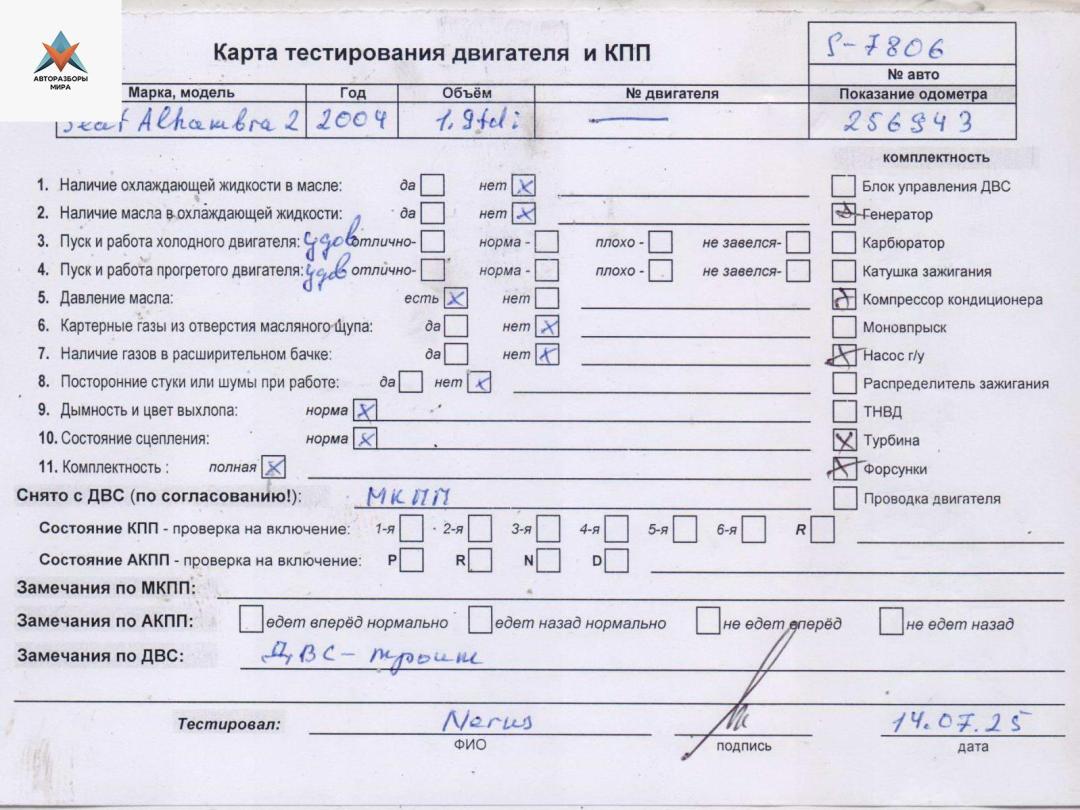 АВТОРАЗБОРЫ
МИРА
Карта тестирования двигателя и КПП
S-7806
№ авто
Марка, модель Год Объём № двигателя Показание одометра
Seat Alhambra 2 2004 1.9tdi — 256943
комплектность
1. Наличие охлаждающей жидкости в масле: да нет x Блок управления ДВС
2. Наличие масла в охлаждающей жидкости: да нет x Генератор
3. Пуск и работа холодного двигателя: удов отлично- норма - плохо - не завелся- Карбюратор
4. Пуск и работа прогретого двигателя: удов отлично- норма - плохо - не завелся- Катушка зажигания
5. Давление масла: есть x нет Компрессор кондиционера
6. Картерные газы из отверстия масляного щупа: да нет x Моновпрыск
7. Наличие газов в расширительном бачке: да нет x Насос г/у
8. Посторонние стуки или шумы при работе: да нет x Распределитель зажигания
9. Дымность и цвет выхлопа: норма x ТНВД
10. Состояние сцепления: норма x x Турбина
11. Комплектность : полная x x Форсунки
Снято с ДВС (по согласованию!): МКПП Проводка двигателя
Состояние КПП - проверка на включение: 1-я 2-я 3-я 4-я 5-я 6-я R
Состояние АКПП - проверка на включение: P R N D
Замечания по МКПП:
Замечания по АКПП: едет вперёд нормально едет назад нормально не едет вперёд не едет назад
Замечания по ДВС: ДВС - троит
Тестировал: 14.07.25
ФИО подпись дата